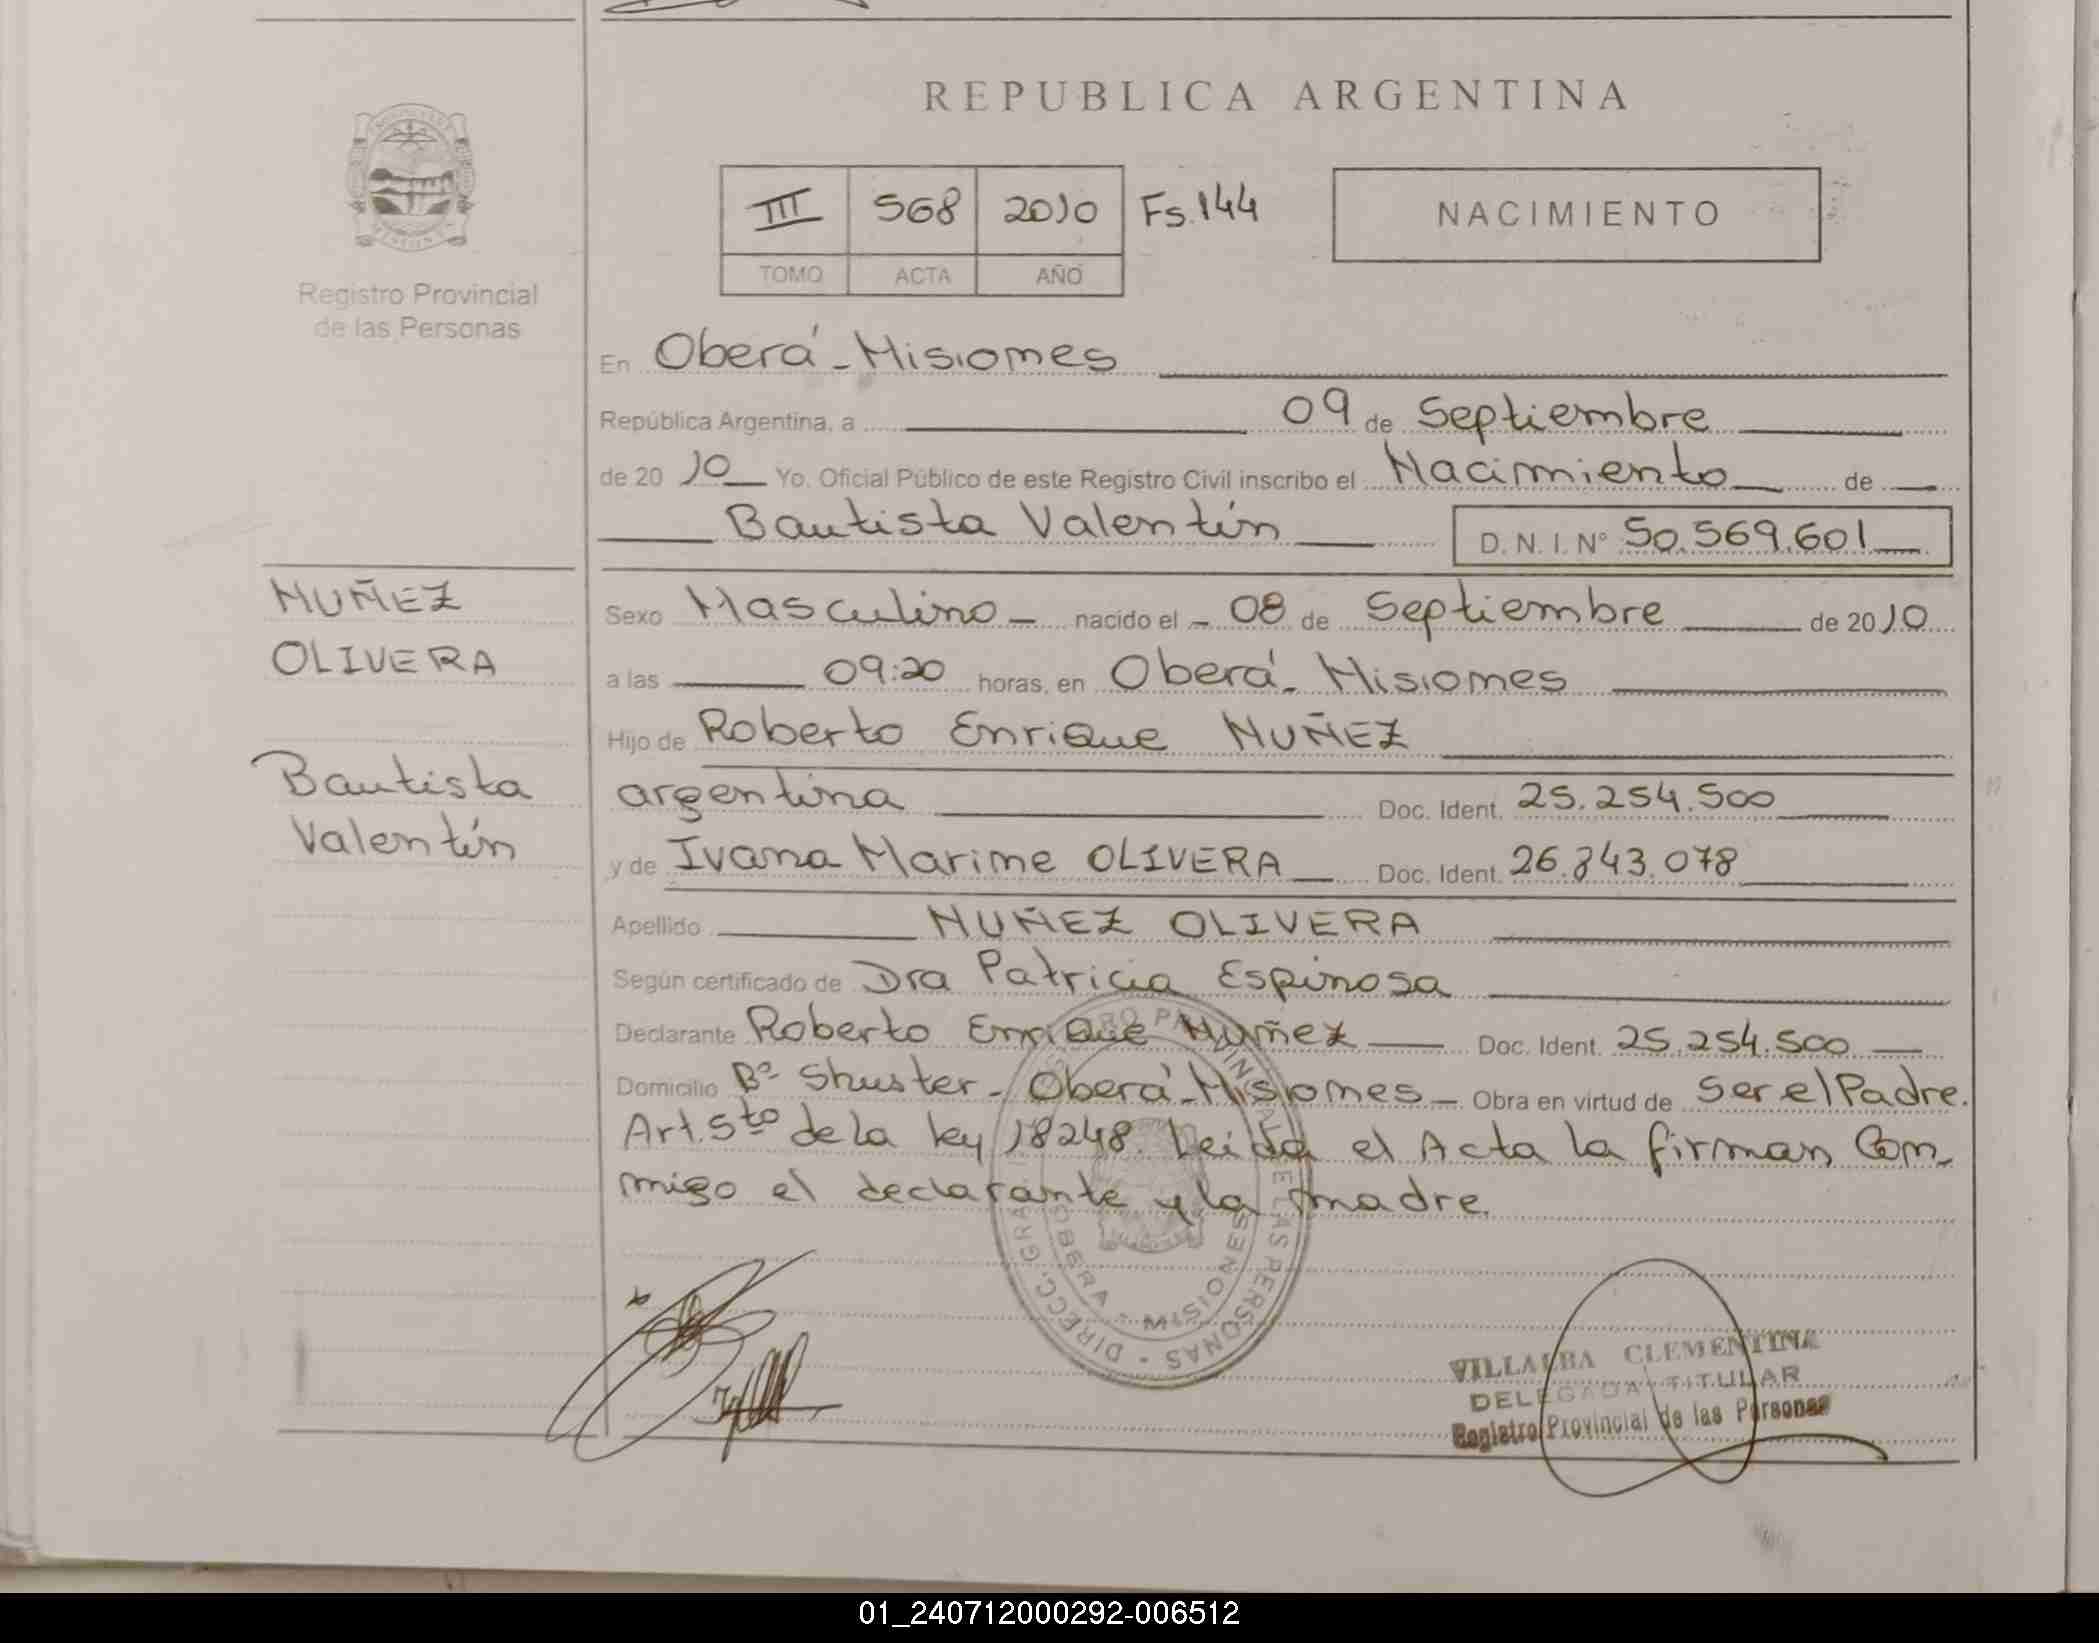 REPUBLICA ARGENTINA
III 568 2010 Fs. 144
TOMO ACTA AÑO
NACIMIENTO
Registro Provincial
de las Personas
En Oberá - Misiones
República Argentina, a 09 de Septiembre
de 20 10 Yo, Oficial Público de este Registro Civil inscribo el Nacimiento de
Bautista Valentín D. N. I. Nº 50.569.601
NUÑEZ
OLIVERA
Bautista
Valentín
Sexo Masculino nacido el 08 de Septiembre de 20 10
a las 09:20 horas, en Oberá - Misiones
Hijo de Roberto Enrique NUÑEZ
argentina Doc. Ident. 25.254.500
y de Ivana Marine OLIVERA Doc. Ident. 26.843.078
Apellido NUÑEZ OLIVERA
Según certificado de Dra Patricia Espinosa
Declarante Roberto Enrique Nuñez Doc. Ident. 25.254.500
Domicilio Bº Shuster - Oberá - Misiones Obra en virtud de Ser el Padre.
Art. 5to de la ley 18248. Leida el Acta la firman Con-
migo el declarante y la madre.
OBERA - MISIONES
VILLALBA CLEMENTINA
DELEGADA TITULAR
Registro Provincial de las Personas
01_240712000292-006512